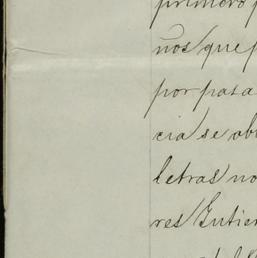 primero p
nos que p
por pasa
cia se ob
letras no
res Gutier